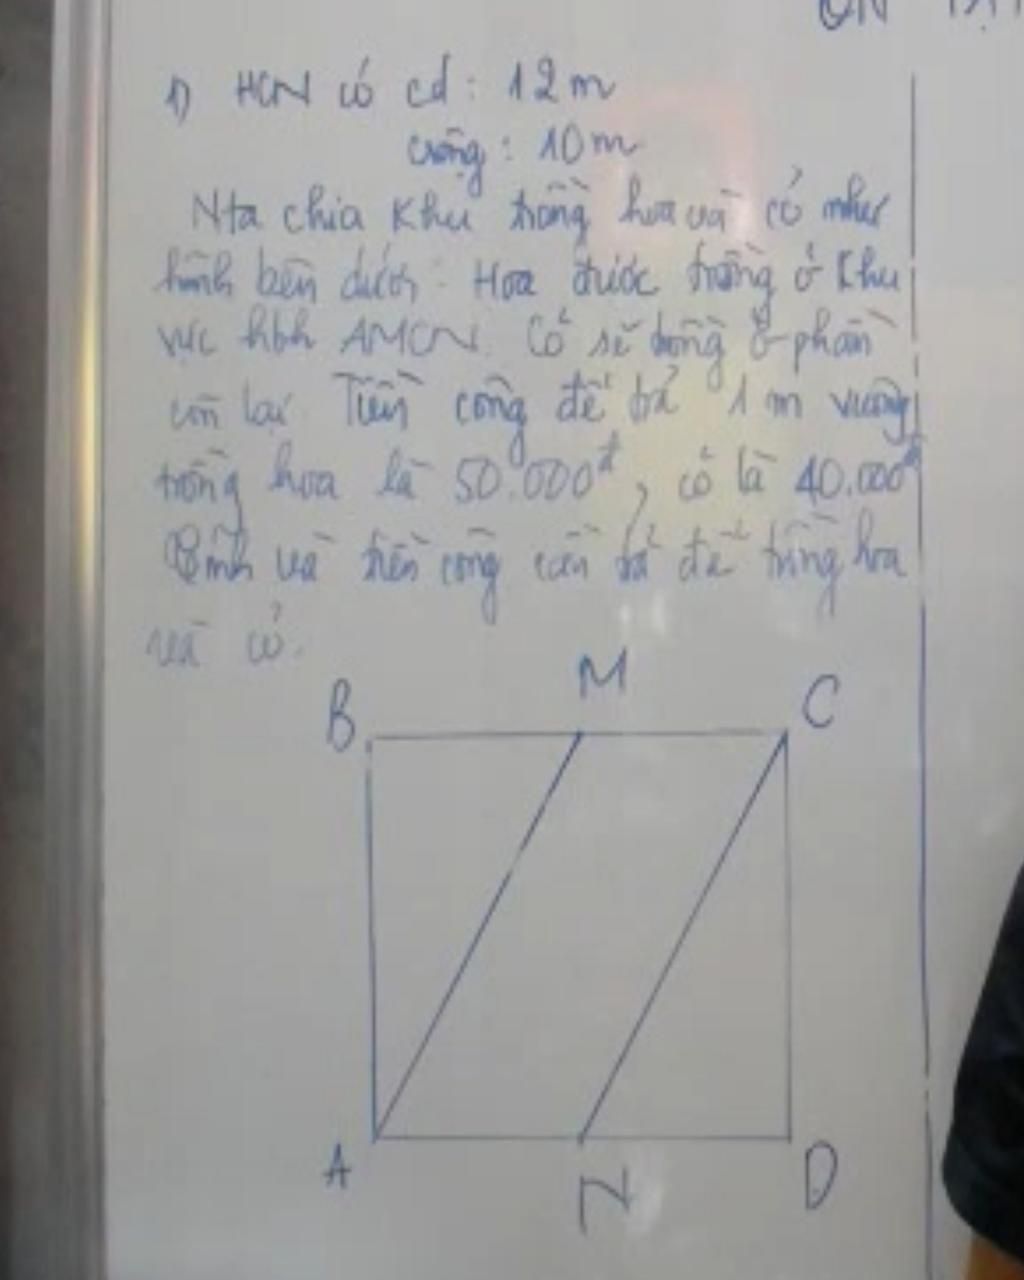 ÔN TẬP
1) HCN có cd : 12m
crộng : 10m
Nta chia khu trồng hoa và cỏ như
hình bên dưới : Hoa được trồng ở khu
vực hbh AMCN. Cỏ sẽ trồng ở phần
còn lại. Tiền công để trả 1 m vuông
trồng hoa là 50.000đ, cỏ là 40.000đ
Tính và tiền công cần trả để trồng hoa
và cỏ.
B M C
A N D